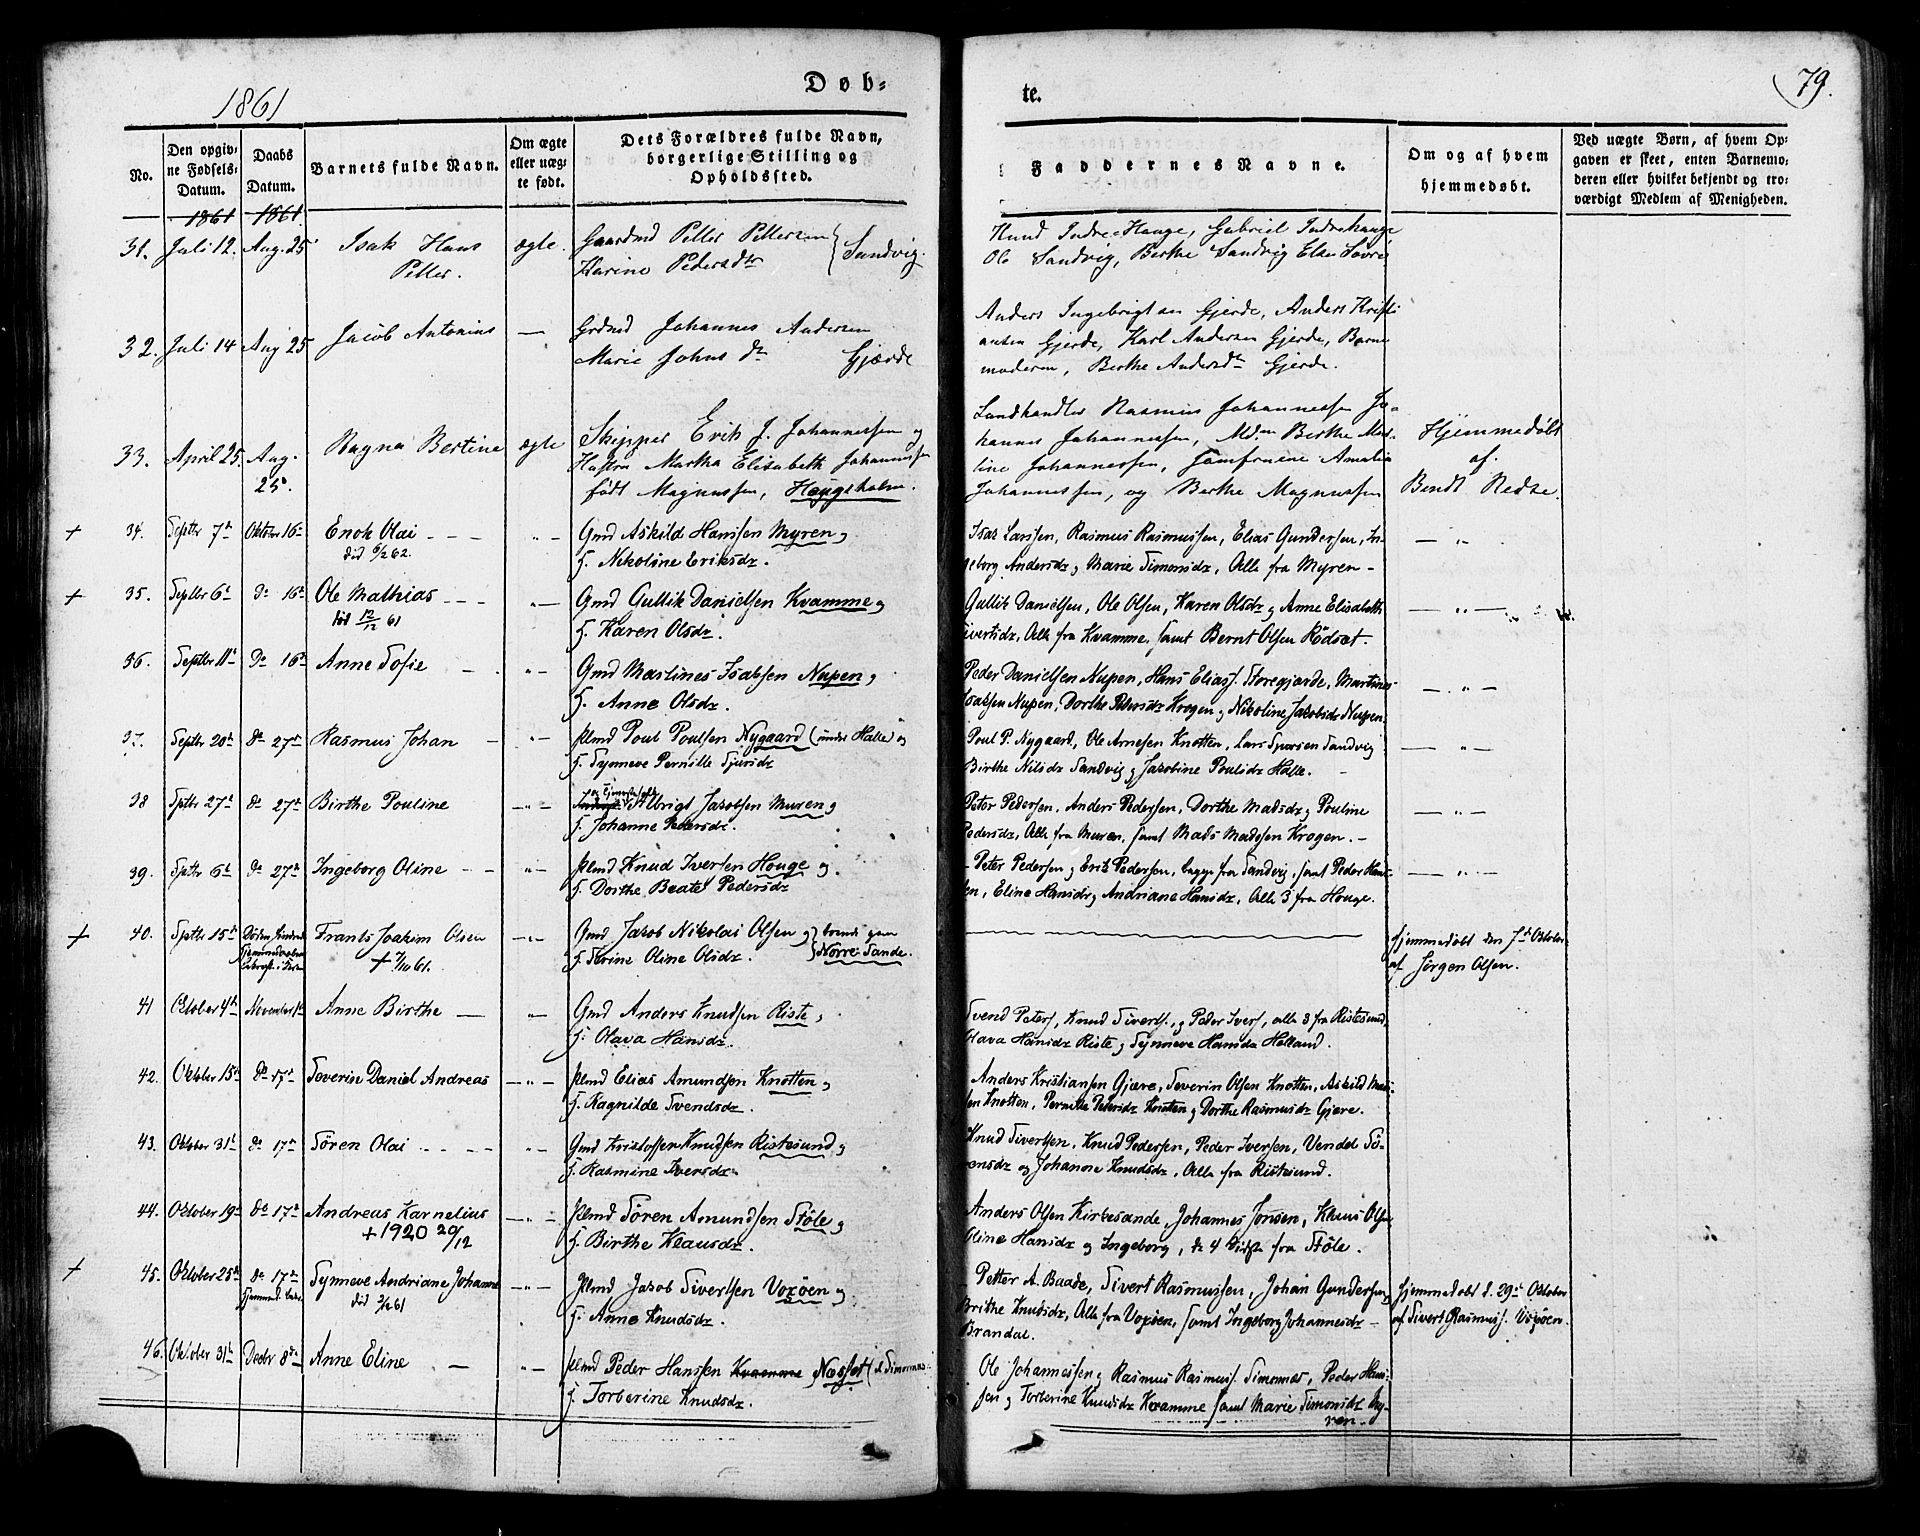 1861
Døb-
te.
79.
No.
Den opgiv-
ne Fødsels-
Datum.
Daabs
Datum.
Barnets fulde Navn.
Om ægte
eller uæg-
te født.
Dets Forældres fulde Navn,
borgerlige Stilling og
Opholdssted.
Faddernes Navne.
Om og af hvem
hjemmedøbt.
Ved uægte Børn, af hvem Op-
gaven er skeet, enten Barnemo-
deren eller hvilket bekjendt og tro-
værdigt Medlem af Menigheden.
1861 1861
31. Juli 12. Aug. 25 Isak Hans
Petter.
ægte. Gaardmd Petter Pettersen
Karine Pedersdtr
Sandvig.
Knud Indre-Hauge, Gabriel Indrehauge
Ole Sandvig, Berthe Sandvig Else
32. Juli 14 Aug 25 Jacob Antonius —
Grdmd Johannes Andersen
Marie Johns dr Gjærde
Anders Ingebrigtsen Gjerde, Anders Kristi-
ansen Gjerde, Karl Andersen Gjerde, Barne-
moderen, Berthe Andersdtr Gjerde.
33. April 25. Aug.
25. Ragna Bertine ægte
Skipper Erik J. Johannessen og
Hustru Martha Elisabeth Johannessen
født Magnussen, Haugsholm.
Landhandler Rasmus Johannessen Jo-
hannes Johannessen, Mdm Berthe Mar-
tine Johannessen, Jomfruene Amalia
Johannessen, og Berthe Magnussen
Hjemmedøbt
af.
Bendt Redse.
+ 34. Septbr 7de Oktober 16de Enok Olai - - -
død 6/2 62.
Gmd Askild Hanssen Myren og
H. Nikoline Eriksdr.
Isak Larssen, Rasmus Rasmussen, Elias Gundersen, In-
geborg Andersdr og Marie Simonsdr, Alle fra Myren —
+ 35. Septbr 6te do 16de Ole Mathias - - -
død 12/12 61
Gmd Gullik Danielsen Kvamme og
H. Karen Olsdr.
Gullik Danielsen, Ole Olsen, Karen Olsdr og Anne Elisabeth
Sivertsdr, Alle fra Kvamme, samt Bernt Olsen Rödsæt —
36. Septbr 11te do 16de Anne Sofie
Gmd Martines Isaksen Nupen og
H. Anne Olsdr.
Peder Danielsen Nupen, Hans Eliass. Storegjærde, Martines
Isaksen Nupen, Dorthe Petersdr Krogen og Nikoline Jakobsdr Nupen.
37. Septbr 20de do 27de Rasmus Johan —
Plmd Poul Poulsen Nygaard (under Halle) og
H. Synneve Pernille Sjursdr
Poul P. Nygaard, Ole Arnesen Knotten, Lars Sandvig
Birthe Nilsdr Sandvig og Jakobine Poulsdr Halle. —
38 Sptbr 27de do 27de Birthe Pouline
Ulrik Jakobsen Muren og
H. Johanne Pedersdr.
Peter Pedersen, Anders Pedersen, Dorthe Madsdr og Pouline
Pedersdr, Alle fra Muren, samt Mads Madssen Krogen. —
39. Sptbr 6te do 27de Ingeborg Oline - -
Plmd Knud Iversen Houge og
H. Dorthe Beate Pedersdr
Peter Pedersen og Erik Pedersen, begge fra Sandvig, samt Peder Han-
sen, Eline Hansdr og Andriane Hansdr, Alle 3 fra Houge.
+ 40. Sptbr 15de Frants Joakim Olsen
+ 7/10 61.
Gmd Jakob Nikolai Olsen og
H. Serine Oline Olsdr.
Norre Sande.
Hjemmedøbt den 7de Oktober
af Jørgen Olsen.
41 Oktober 4de November Anne Birthe —
Gmd Anders Knudsen Riste og
H. Olava Hansdr.
Svend Peters., Knud Siverts., og Peder Ivers., alle 3 fra Ristesund,
Olava Hansdr Riste og Synneve Hansdr Holland.
42. Oktober 15de do 17de Severin Daniel Andreas
Plmd Elias Amundsen Knotten og
H. Ragnilde Svendsdr.
Anders Kristiansen Gjære, Severin Olsen Knotten, Askild Mad-
sen Knotten, Pernille Petersdr Knotten og Dorthe Rasmusdr Gjære.
43. Oktober 31te do 17de Sören Olai - - - -
Gmd Kristoffen Knudsen Ristesund og
H. Rasmine Iversdr.
Knud Sivertsen, Knud Pedersen, Peder Iversen, Vendel Sö-
rensdr og Johanne Knudsdr, Alle fra Ristesund.
44. Oktober 19de do 17de Andreas Karnelius
+ 1920 20/12
Plmd Sören Amundsen Stöle og
H. Birthe Klausdr.
Anders Olsen Kirkesande, Johannes Jonsen, Klaus Olsen
Oline Hansdr og Ingeborg, de 4 Sidste fra Stöle.
+ 45. Oktober 25de do 17de Synneve Andriane Johanne
Plmd Jakob Sivertsen Voxöen og
H. Anne Knudsdr.
Petter A. Baade, Sivert Rasmussen, Johan Gundersen,
Brithe Knudsdr, Alle fra Voxöen, samt Ingeborg Johannesdr —
Brandal.
Hjemmedøbt d. 29de Oktober
af Sivert Rasmuss. Voxöen.
46. Oktober 31te Decbr 8de Anne Eline —
Plmd Peder Hanssen Kvamme Næsset
H. Torberine Knudsdr.
Ole Johannessen og Rasmus Rasmuss. Simonnes, Peder Hans-
sen og Torberine Knudsdr Kvamme samt Marie Simonsdr My-
ren.